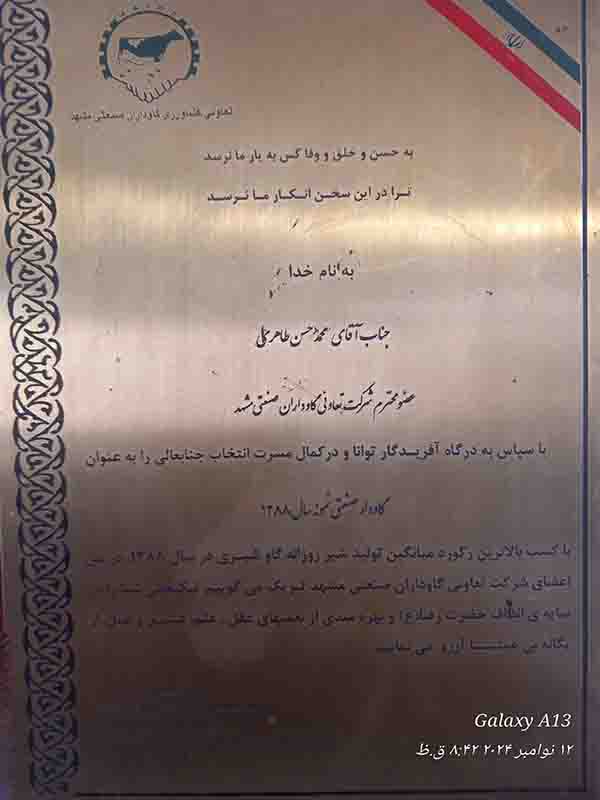 تعاونی کشاورزی گاوداران صنعتی مشهد
به حسن و خلق و وفا کس به یار ما نرسد
ترا در این سخن انکار ما نرسد
به نام خدا
جناب آقای محمد حسن طاهر
عضو محترم شرکت تعاونی گاوداران صنعتی مشهد
با سپاس به درگاه آفریدگار توانا و در کمال مسرت انتخاب جنابعالی را به عنوان
گاودار صنعتی نمونه سال ۱۳۸۸
با کسب بالاترین رکورد میانگین تولید شیر روزانه گاو شیری در سال ۱۳۸۸ در بین
اعضای شرکت تعاونی گاوداران صنعتی مشهد تبریک می گوییم
سایه ی الطاف حضرت رضا(ع) و بهره مندی از نعمتهای عقل ، علم
یگانه بی همتا آرزو می نماییم
Galaxy A13
۱۲ نوامبر ۲۰۲۴ ۸:۴۲ ق.ظ